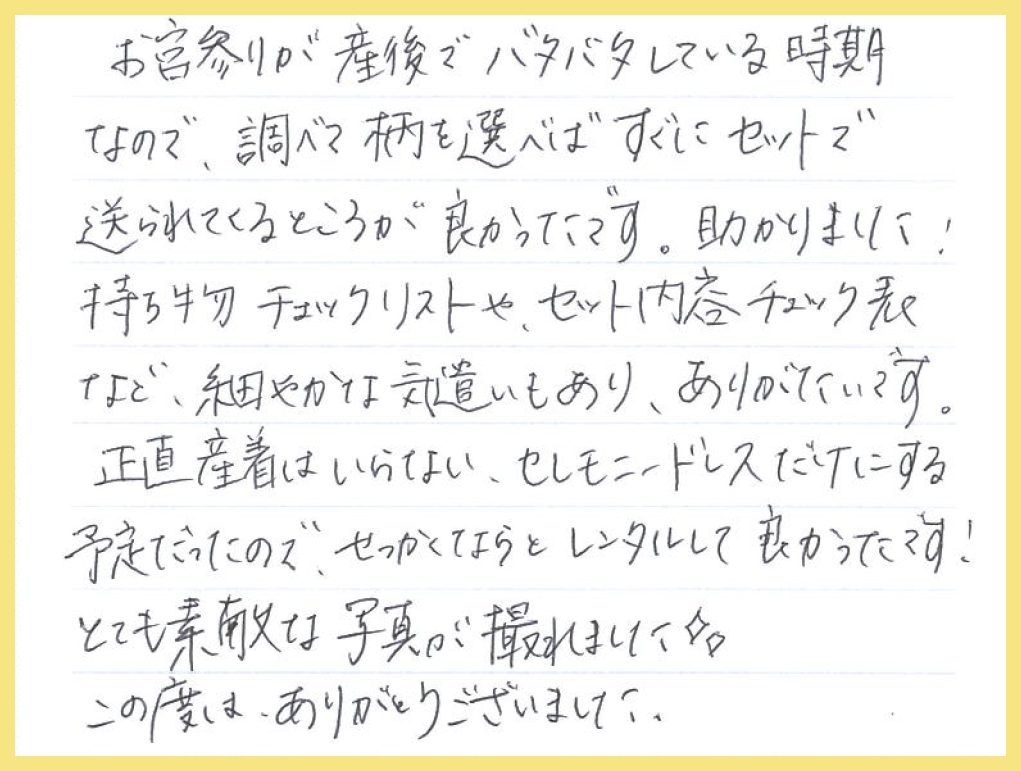 お宮参りが産後でバタバタしている時期
なので、調べて柄を選べばすぐにセットで
送られてくるところが良かったです。助かりました!
持ち物チェックリストや、セット内容チェック表
など、細やかな気遣いもあり、ありがたいです。
正直産着はいらない、セレモニードレスだけにする
予定だったので、せっかくならとレンタルして良かったです!
とても素敵な写真が撮れました✧✧
この度は、ありがとうございました。